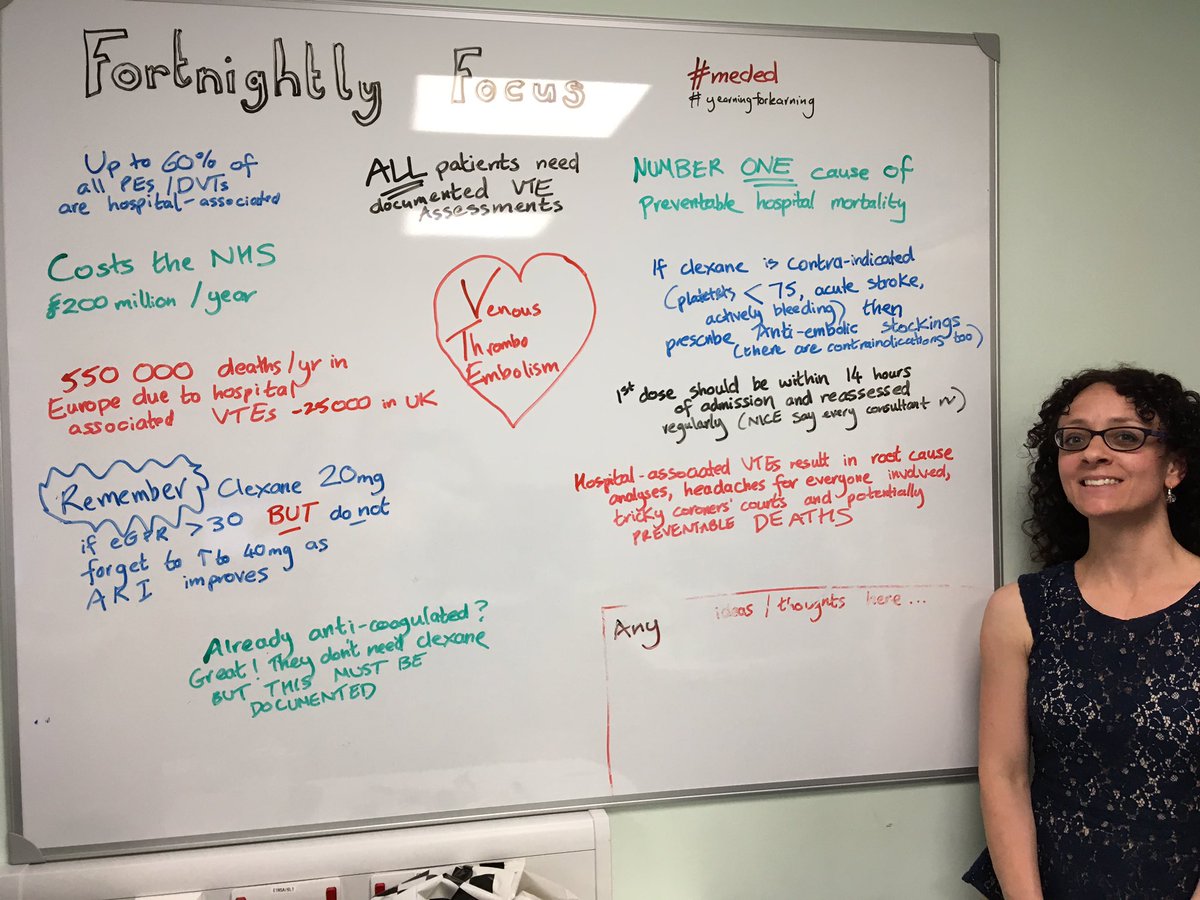 Fortnightly Focus
#meded
#yearningforlearning
Up to 60% of
all PEs/DVTs
are hospital-associated
ALL patients need
documented VTE
Assessments
NUMBER ONE cause of
preventable hospital mortality
Costs the NHS
£200 million / year
Venous
Thrombo
Embolism
If clexane is contra-indicated
(platelets < 75, acute stroke,
actively bleeding) then
prescribe Anti-embolic stockings
(there are contraindications too)
550 000 deaths/yr in
Europe due to hospital
associated VTEs ~25000 in UK
1st dose should be within 14 hours
of admission and reassessed
regularly (NICE say every consultant)
Remember Clexane 20mg
if eGFR >30 BUT do not
forget to ↑ to 40mg as
AKI improves
Hospital-associated VTEs result in root cause
analyses, headaches for everyone involved,
tricky coroners' courts and potentially
PREVENTABLE DEATHS
Already anti-coagulated?
Great! They don't need clexane
BUT THIS MUST BE
DOCUMENTED
Any ideas / thoughts here ...